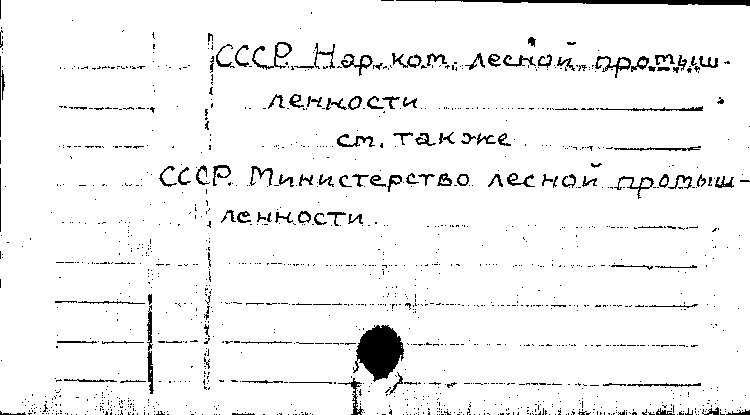 СССР. Нар. ком. лесной промыш-
ленности
см. также
СССР. Министерство лесной промыш-
ленности.